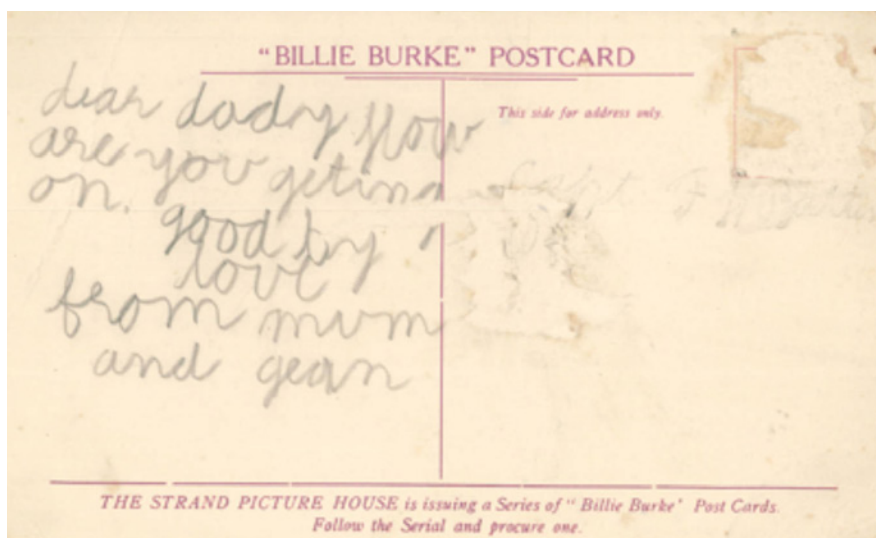 "BILLIE BURKE" POSTCARD
This side for address only.
dear dady how
are you geting
on.
good by
love
from mum
and gean
Capt F
THE STRAND PICTURE HOUSE is issuing a Series of "Billie Burke' Post Cards.
Follow the Serial and procure one.